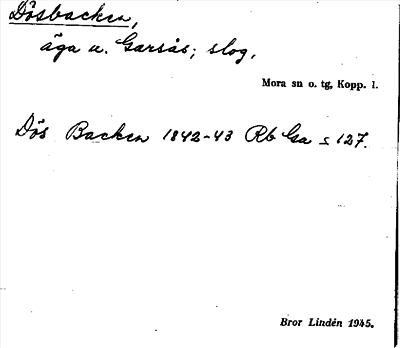 Dösbacken,
äga u. Garsås; slog.
Mora sn o. tg, Kopp. l.
Dös Backen 1842-43 Rb Ga s 127.
Bror Lindén 1945.